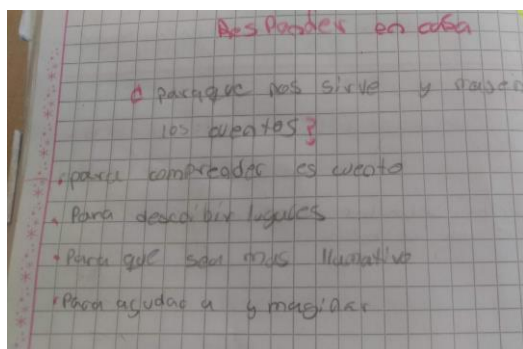 Responder en casa
¿ paraque nos sirve y
los cuentos?
. para comprender es cuento
. Para describir lugares
. Para que sea mas llamativo
. Para ayudar a y maginar